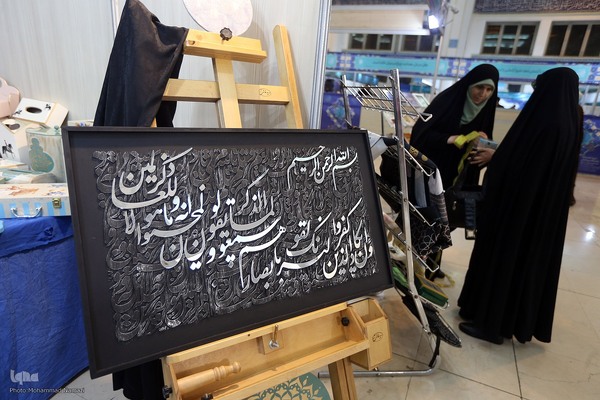 بسم الله الرحمن الرحیم
وان یکاد الذین کفروا لیزلقونک بابصارهم لما سمعوا الذکر ویقولون انه لمجنون وما هو الا ذکر للعالمین
iqna
Photo:Mohammad